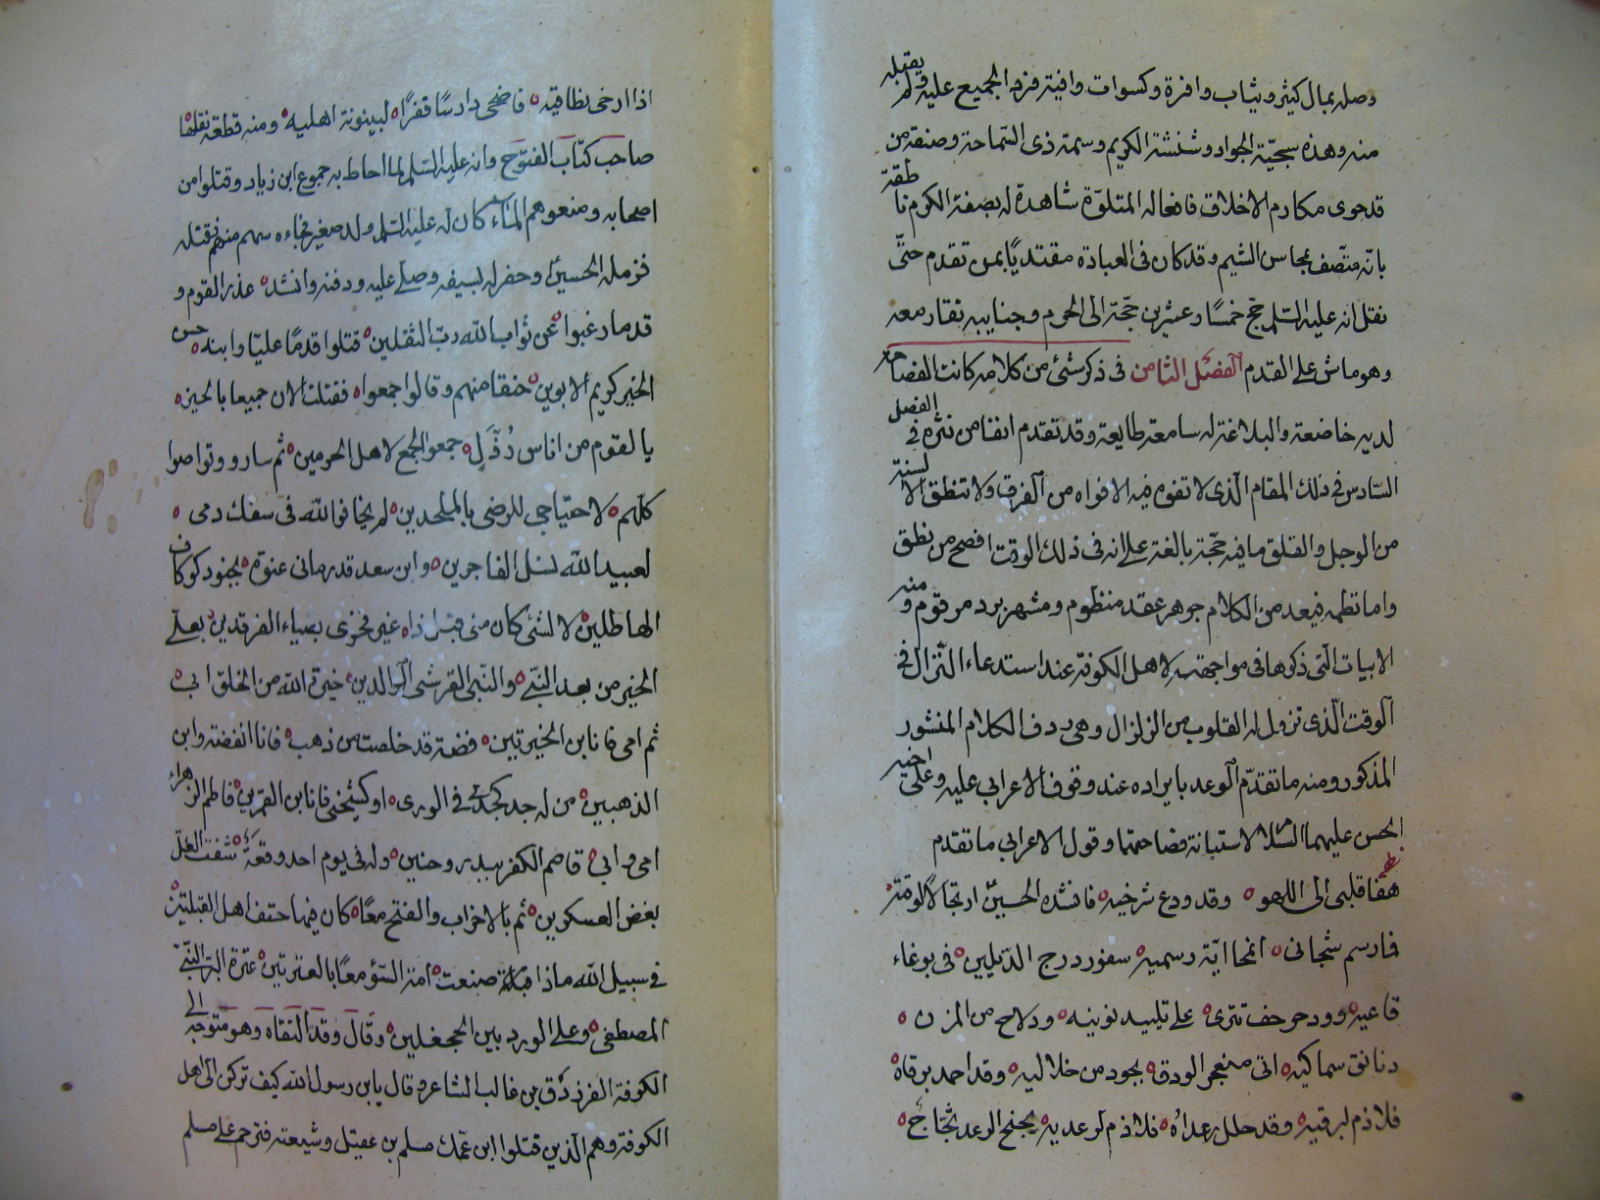 وصله بمال كثير و ثياب وافرة وكسوات وافية فرد الجميع عليه ولم يقبله
منه وهذه سجيّة الجواد وشنشنة الكريم وسمة ذى السّماحة وصفة من
قد حوى مكارم الاخلاق فافعاله المتلوّة شاهدة له بصفة الكرم ناطقة
بانّه متّصف بمحاسن الشيم وقد كان فى العبادة مقتديًا بمن تقدم حتّى
نقل انه عليه السّلم حجّ خمسًا وعشرين حجّة الى الحرم وجنايبه تقاد معه
وهو ماش على القدم الفصل الثامن فى ذكر شئ من كلامه كانت الفصاحة
لديه خاضعة والبلاغة له سامعة طايعة وقد تقدم انفا من نثره فى الفصل
السّادس فى ذلك المقام الّذى لا تفوه فيه الافواه من الفرق ولا تنطق الالسنة
من الوجل والقلق ما فيه حجّة بالغة على انه فى ذلك الوقت افصح من نطق
واما نظمه فيعد من الكلام جوهر عقد منظوم ومشهر برد مرقوم ومنه
الابيات الّتى ذكرها فى مواجهته لاهل الكوفة عند استدعاء النّزال فى
الوقت الّذى تزول له القلوب من الزلزال وهى ردف الكلام المنثور
المذكور ومنه ما تقدّم الوعد بايراده عند وقوف الاعرابى عليه وعلى اخيه
الحسن عليهما السّلام لاستبانة فصاحتها وقول الاعرابى ما تقدم
هفا قلبى الى اللهو وقد ودع شرخيه فانشده الحسين ارتجالًا لوقته
فما رسم شجانى انمحا اية رسميه سفور درج الذيلين فى بوغاء
قاعيه وود حرجف تترى على تلبيد نوبيه ودلاح من المزن
دنا نوّ سماكيه اتى مثعنجر الودق بجود من خلاليه وقد احمد برقاه
فلا ذم لبرقيه وقد جلل رعداه فلا ذم لرعديه يجنح الرعد ثجّاج
اذا ارخى نطاقيه فاضحى دارسًا قفرًا لبينونة اهليه ومنه قطعة نقلها
صاحب كتاب الفتوح وانه عليه السّلم لما احاط به جموع ابن زياد وقتلوا من
اصحابه ومنعوهم الماء كان له عليه السّلم ولد صغير فجاءه سهم منهم فقتله
فزمله الحسين وحفر له بسيفه وصلّى عليه ودفنه وانشد غدر القوم و
قدما رغبوا عن ثواب الله ربّ الثقلين قتلوا قدمًا عليّا وابنه حسن
الخير كريم الابوين حنقا منهم وقالوا جمعوا فقتلت الان جميعا بالحين
يا لقوم من اناس رُذَّلٍ جمعوا الجمع لاهل الحرمين ثم سارو وتواصوا
كلّهم لاحتياجى للرضى بالملحدين لم يخافوا الله فى سفك دمى
لعبيد الله نسل الفاجرين وابن سعد قد رمانى عنوة بجنود كوكاف
الهاطلين لا لشئ كان منى قبل ذا غير فخرى بضياء الفرقدين بعلى
الخير من بعد النّبى والنّبى القرشى الوالدين خيرة الله من الخلق ابى
ثم امى فانا ابن الخيرتين فضة قد خلصت من ذهب فانا الفضة وابن
الذهبين من له جد كجدى فى الورى او كشيخى فانا ابن القمرين فاطم الزهراء
امى وابى قاصم الكفر ببدر وحنين وله فى يوم احد وقعة شفت الغلّ
بفض العسكرين ثم بالاحزاب والفتح معًا كان فيها حتف اهل القبلتين
فى سبيل الله ماذا صنعت امة السّؤ معًا بالعترتين عترة البر النّبى
المصطفى وعلى الورد بين الجحفلين وقال وقد التقاه وهو متوجّه الى
الكوفة الفرزدق بن غالب الشاعر وقال يابن رسول الله كيف تركن الى اهل
الكوفة وهم الّذين قتلوا ابن عمّك مسلم بن عقيل وشيعته فترحم على مسلم